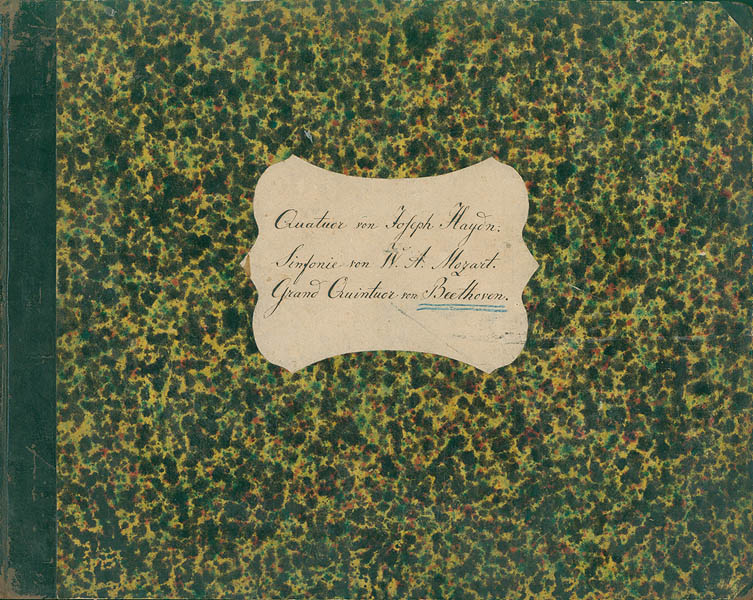 Quatuor von Joseph Haydn.
Sinfonie von W. A. Mozart.
Grand Quintuor von Beethoven.